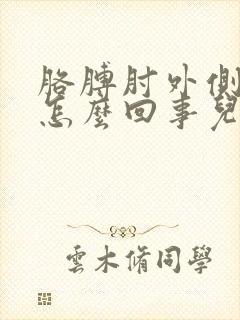 胳膊肘外側
怎麼回事兒
雲木脩同學